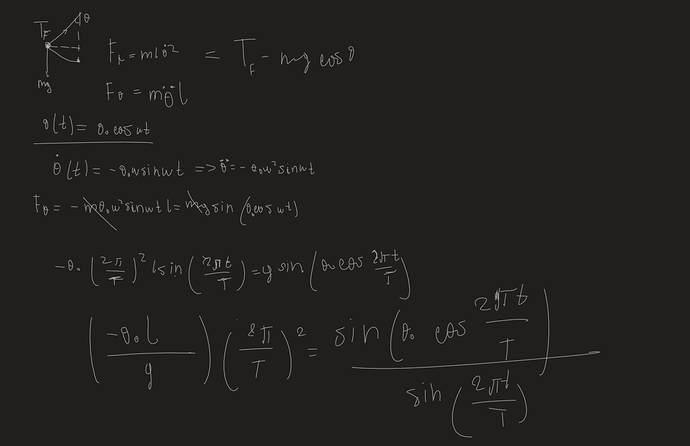 T_F θ
mg
F_r = mlθ̇² = T_F - mg cosθ
F_θ = mθ̈l
θ(t) = θ₀ cos ωt
θ̇(t) = -θ₀ω sin ωt => θ̈ = -θ₀ω² sin ωt
F_θ = - mθ₀ω² sin ωt l = mg sin (θ₀ cos ωt)
-θ₀ (2π/T)² l sin (2πt/T) = g sin (θ₀ cos 2πt/T)
(-θ₀l/g) (2π/T)² = sin (θ₀ cos 2πt/T) / sin (2πt/T)